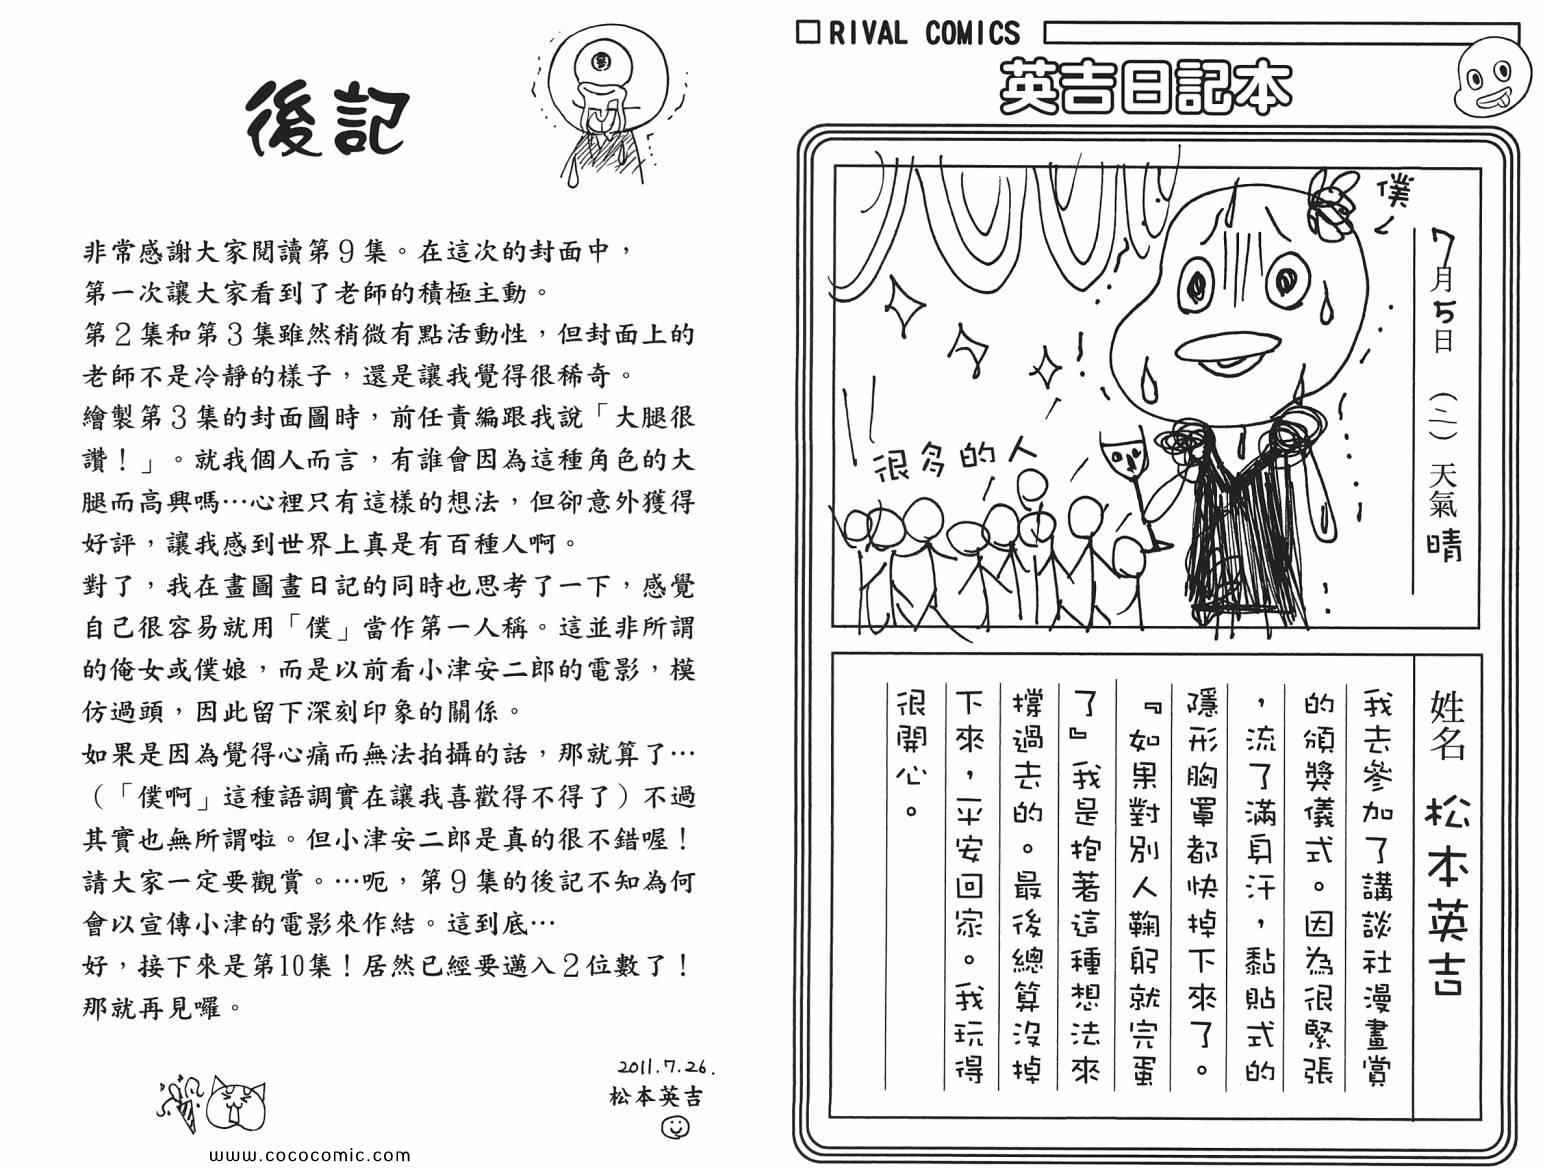 RIVAL COMICS
英吉日記本
僕
7月5日 (二) 天氣 晴
很多的人
姓名 松本英吉
我去參加了講談社漫畫賞
的頒獎儀式。因為很緊張
，流了滿身汗，黏貼式的
隱形胸罩都快掉下來了。
『如果對別人鞠躬就完蛋
了』我是抱著這種想法來
撐過去的。最後總算沒掉
下來，平安回家。我玩得
很開心。
後記
非常感謝大家閱讀第９集。在這次的封面中，
第一次讓大家看到了老師的積極主動。
第２集和第３集雖然稍微有點活動性，但封面上的
老師不是冷靜的樣子，還是讓我覺得很稀奇。
繪製第３集的封面圖時，前任責編跟我說「大腿很
讚！」。就我個人而言，有誰會因為這種角色的大
腿而高興嗎…心裡只有這樣的想法，但卻意外獲得
好評，讓我感到世界上真是有百種人啊。
對了，我在畫圖畫日記的同時也思考了一下，感覺
自己很容易就用「僕」當作第一人稱。這並非所謂
的俺女或僕娘，而是以前看小津安二郎的電影，模
仿過頭，因此留下深刻印象的關係。
如果是因為覺得心痛而無法拍攝的話，那就算了…
（「僕啊」這種語調實在讓我喜歡得不得了）不過
其實也無所謂啦。但小津安二郎是真的很不錯喔！
請大家一定要觀賞。…呃，第９集的後記不知為何
會以宣傳小津的電影來作結。這到底…
好，接下來是第10集！居然已經要邁入２位數了！
那就再見囉。
2011.7.26.
松本英吉
www.cococomic.com